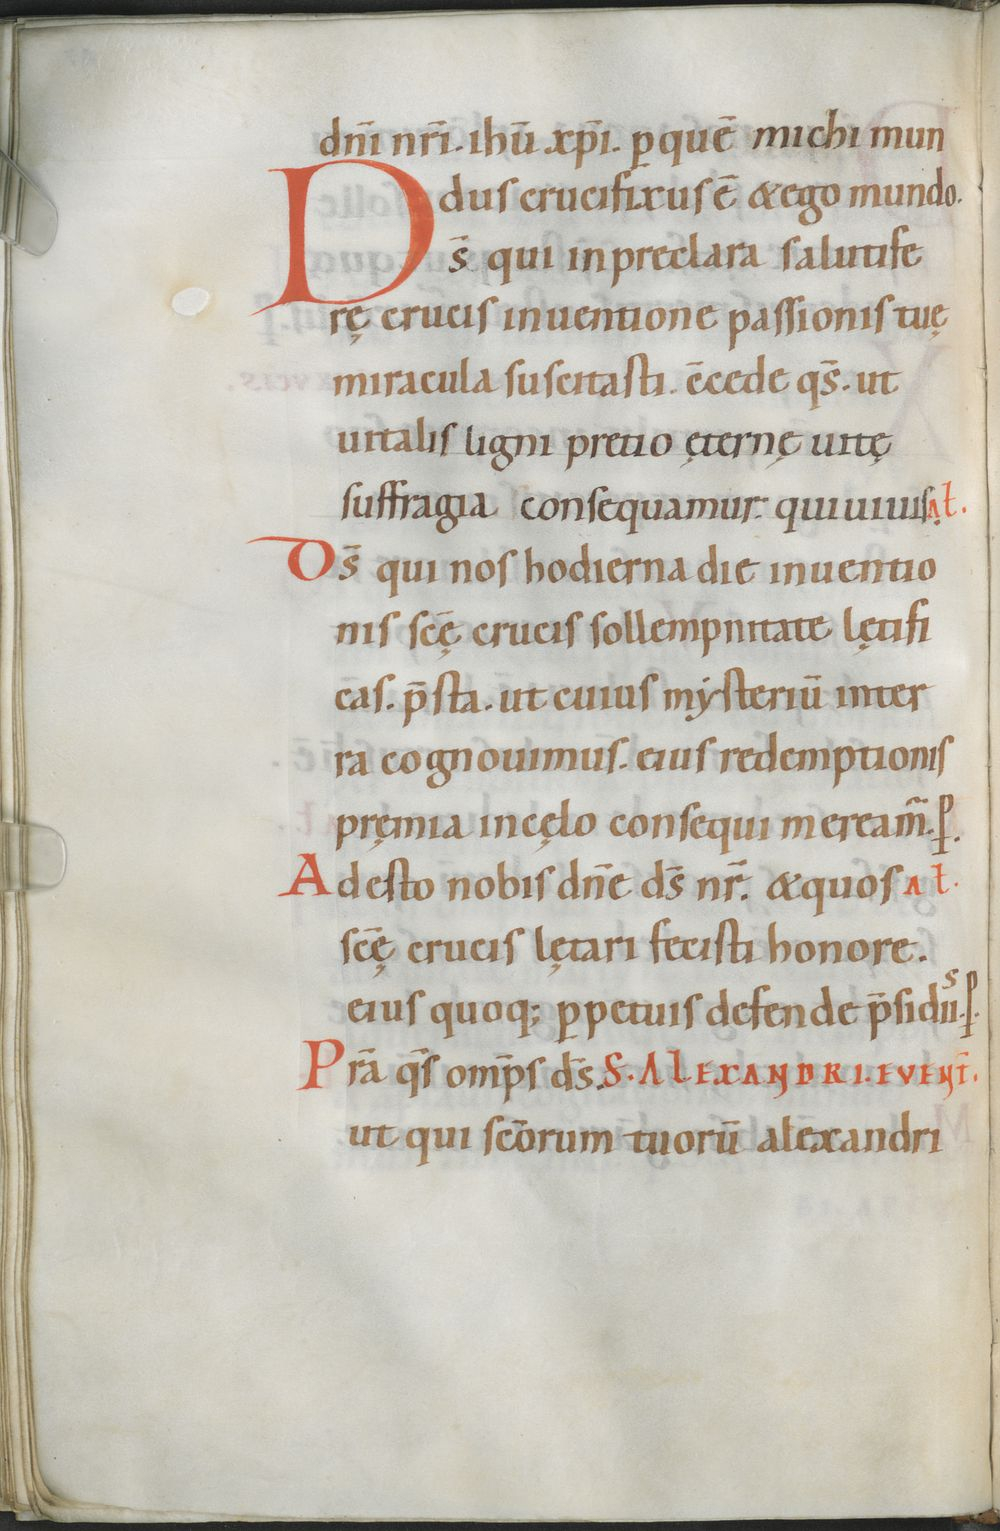 dn̄i nr̄i. ihū. xp̄i. ꝑ quē michi mun
dus crucifixus ē &ego mundo.
Ds̄ qui in preclara salutife
rę crucis inuentione passionis tuę
miracula suscitasti. c̄cede qs̄. ut
uitalis ligni pretio ęternę uitę
suffragia consequamur. qui uiuis. Ał.
Ds̄ qui nos hodierna die inuentio
nis scę̄ crucis sollempnitate lętifi
cas. p̄sta. ut cuius mẏsteriū inter
ra cognouimus. eius redemptionis
pręmia in cęlo consequi meream̄. ꝑ.
Adesto nobis dn̄e ds̄ nr̄. &quos Ał.
scę̄ crucis lętari fecisti honore.
eius quoq; ꝑpetuis defende p̄sidiis. ꝑ.
Pr̄a qs̄ omp̄s ds̄. S. ALEXANDRI. EVENT̄.
ut qui scōrum tuorū alexandri